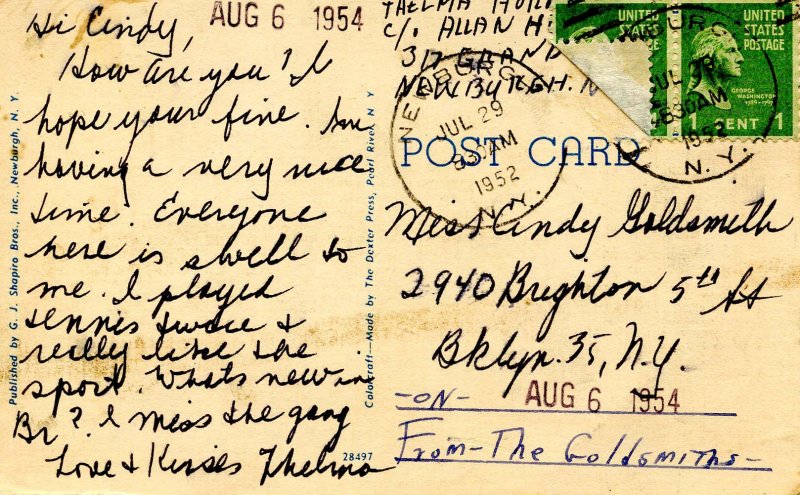 AUG 6 1954
Hi Cindy,
How are you? I
hope your fine. Im
having a very nice
time. Everyone
here is swell to
me. I played
tennis twice &
really like the
sport. Whats new in
Br? I miss the gang
Love & Kisses Thelma
Published by G. J. Shapiro Bros., Inc., Newburgh, N. Y.
Colorcraft—Made by The Dexter Press, Pearl River, N Y
28497
THELMA
C/o ALLAN
317 GRAND
NEWBURGH. N
NEWBURGH
JUL 29
830AM
1952
N. Y.
UNITED
STATES
UNITED
STATES
POSTAGE
GEORGE
WASHINGTON
1789-1797
1 CENT 1
JUL 29
830AM
1952
N. Y.
POST CARD
Miss Cindy Goldsmith
2940 Brighton 5th St
Bklyn. 35, N.Y.
AUG 6 1954
-ON-
From-The Goldsmiths-